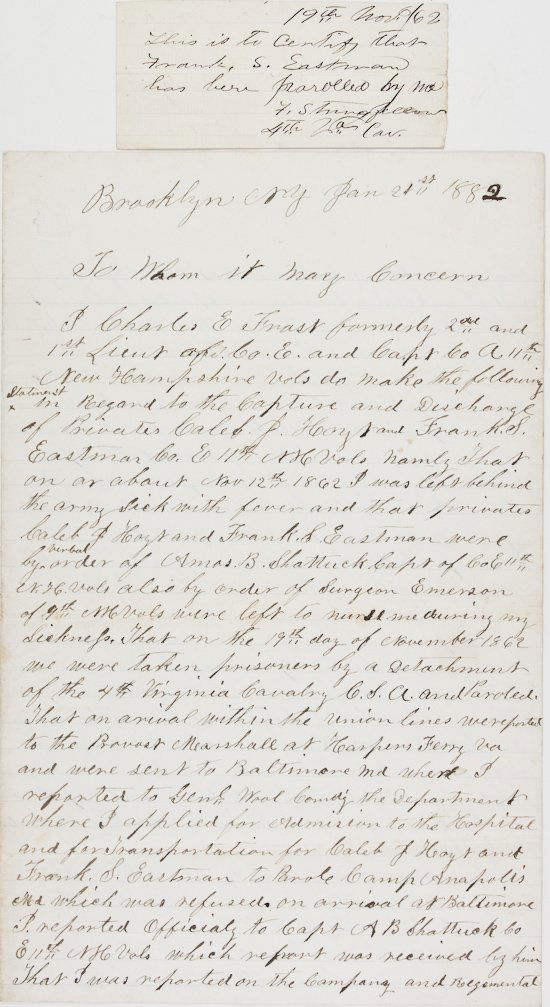 19th Nov. /62
This is to Certify that
Frank. S. Eastman
has been parolled by me
F. Stringfellow
4th Va Cav.
Brooklyn NY Jan 21st 1882
To Whom it may Concern
I Charles E Frost formerly 2nd and
1st Lieut of Co. E. and Capt Co A 11th
New Hampshire Vols do make the following
Statement
in Regard to the Capture and Discharge
of Privates Caleb J. Hoyt and Frank. S.
Eastman Co. E 11th NH Vols namly That
on or about Nov 12th 1862 I was left behind
the army Sick with fever and that privates
Caleb J Hoyt and Frank. S Eastman were
by verbal order of Amos. B. Shattuck Capt of Co E 11th
N.H. Vols also by order of Surgeon Emerson
of 9th NH Vols were left to nurse me during my
Sickness. That on the 19th day of November 1862
we were taken prisoners by a Detachment
of the 4th Virginia Cavalry C. S. A. and Paroled.
That on arival within the union lines we reported
to the Provost Marshall at Harpers Ferry Va
and were sent to Baltimore Md where I
reported to Genl Wool Comdg the Department
where I applied for Admission to the Hospital
and for Transportation for Caleb J Hoyt and
Frank. S. Eastman to Parole Camp Anapolis
Md which was refused. on arrival at Baltimore
I reported Officialy to Capt A B Shattuck Co
E 11th NH Vols which report was received by him
That I was reported on the Company and Regimental